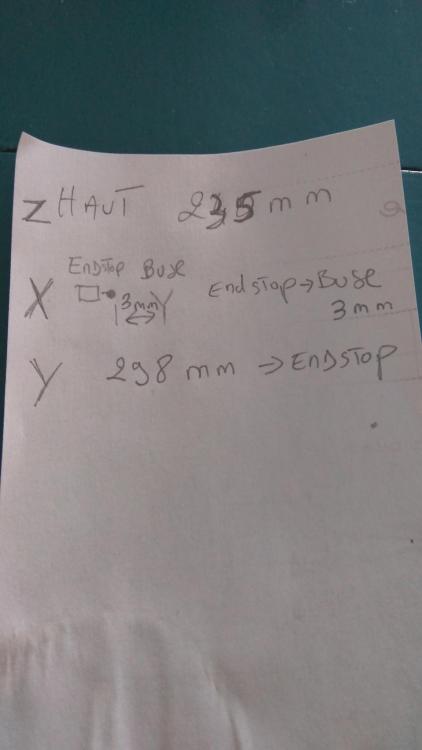 Z HAUT 235 mm
ENDSTOP BUSE
X 3mm Endstop → BUSE
3 mm
Y 298 mm → ENDSTOP